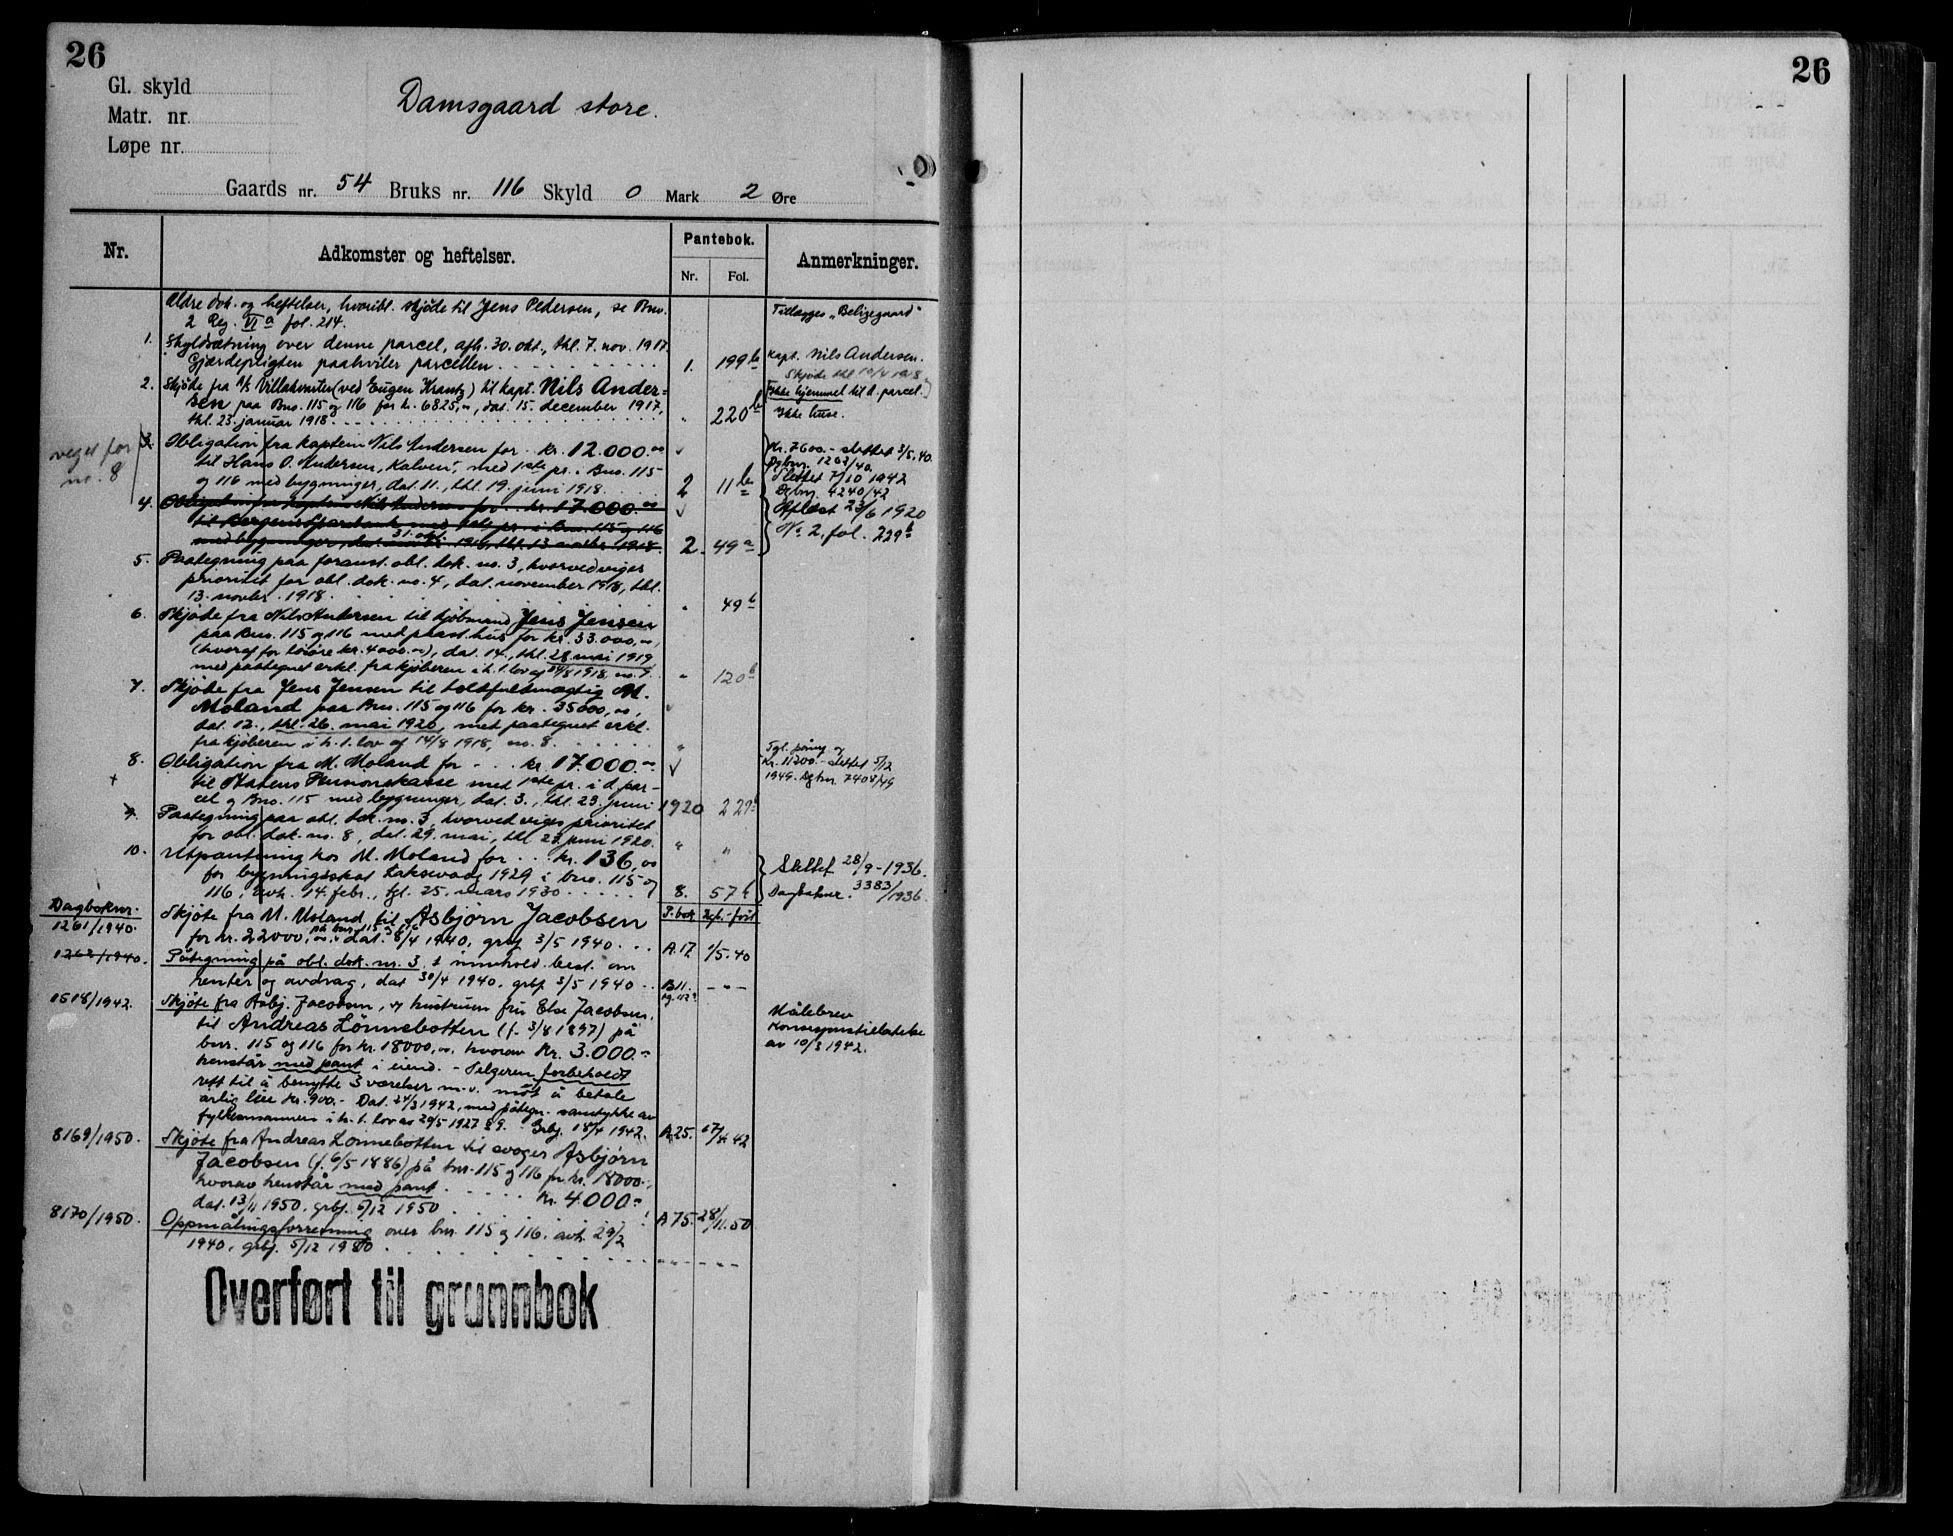 26
Gl. skyld
Damsgaard store.
Matr. nr.
Løpe nr.
Gaards nr. 54 Bruks nr. 116 Skyld 0 Mark 2 Øre
Nr.
Adkomster og heftelser.
Pantebok.
Nr. Fol.
Anmerkninger.
Ældre dok. og heftelser, hvoribl. skjøde til Jens Pedersen, se Bno.
2 Reg. VI a fol. 214.
Tillægges „Belizegaard"
1. Skyldsætning over denne parcel, afh. 30. okt., thl. 7. nov. 1917.
Gjærdepligten paahviler parcellen 1. 199 b
Kapt. Nils Andersen.
Skjøde thl
2. Skjøde fra A/S Villakvarter (ved Eugen Krantz) til kapt. Nils Ander-
sen paa Bno. 115 og 116 for kr. 6825,00, dat. 15. december 1917,
thl. 23. januar 1918 " 220 b
Ikke hjemmel til d. parcel.
Ikke huse.
veget for
no. 8
3. Obligation fra kaptein Nils Andersen for kr. 12.000.00
til Hans O. Andersen, Kalven, med 1ste pr. i Bno. 115
og 116 med bygninger, dat. 11., thl. 19. juni 1918 2 11 b
Kr. 7600.- slettet 3/5.40.
Dgbnr. 1262/40.
Slettet 7/10 1942
Dgbnr. 4240/42
4. Obligation fra kaptein Nils Andersen for kr. 17000.00
til Bergens Sparebank med 1ste pr. i Bno. 115 og 116
med bygninger, dat. 31. okt. 1918, thl. 13 novbr. 1918. 2. 49 a
Aflæst 23/6 1920
No. 2. fol. 229 b
5. Paategning paa foranst. obl. dok. no. 3, hvorved viges
prioritet for obl. dok. no. 4, dat. november 1918, thl.
13. novbr. 1918. " 49 b
6. Skjøde fra Nils Andersen til kjøbmand Jens Jensen
paa Bno. 115 og 116 med paast. hus for kr. 33.000,00,
(hvoraf for løsøre kr. 4000.00), dat. 14., thl. 28 mai 1919
med paategnet erkl. fra kjøberen i h. t. lov af 14/8 1918, no. 8. " 120 b
7. Skjøde fra Jens Jensen til toldfuldmægtig M.
Moland paa Bno. 115 og 116 for kr. 35000,00,
dat. 12., thl. 26. mai 1920, med paategnet erkl.
fra kjøberen i h. t. lov af 14/8 1918, no. 8. "
8. Obligation fra M. Moland for kr. 17.000.00
til Statens Pensionskasse med 1ste pr. i d. par-
cel og Bno. 115 med bygninger, dat. 3., thl. 23. juni 1920 229
Kr. 11200.- slettet 5/12
1949. Dgbnr. 7408/49
9. Paategning paa obl. dok. no. 3, hvorved viges prioritet
for obl. dok. no. 8, dat. 29. mai, thl 23. juni 1920. " "
10. Utpantning hos M. Moland for kr. 136,00
for bygningsskat Laksevaag 1929 i bno. 115 og
116, avh. 14. febr., tgl. 25. mars 1930 8. 57 b
Slettet 28/9-1936.
Dagboknr. 3383/1936.
Dagboknr.
1261/1940.
Skjøte fra M. Moland til Asbjørn Jacobsen
på bnr. 115 og 116
for kr. 22000,00, dat. 8/4 1940, grbf 3/5 1940 A.17 1/5.40
1262/1940.
Påtegning på obl. dok. nr. 3, innehold. best. om
renter og avdrag, dat 30/4 1940, grbf 3/5 1940 B11. - " -
1518/1942.
Skjøte fra Asbj. Jacobsen, og hustruen fru Else Jacobsen,
til Andreas Lønnebotten (f. 3/8 1897) på
bnr. 115 og 116 for kr. 18000,00, hvorav kr. 3.000.00
henstår med pant i eiend. - Selgeren forbeholdt
rett til å benytte 3 værelser m.v. mot å betale
årlig leie kr. 900.- Dat. 24/3 1942, med påtegn. samtykke av
fylkesmannen i h. t. lov av 20/5 1927 § 9. Grbf. 18/4 1942. A25. 17/4.42
Målebrev
Konsesjonstillatelse
av 10/3 1942.
8169/1950.
Skjøte fra Andreas Lønnebotten til svoger Asbjørn
Jacobsen (f. 6/5 1886) på bnr. 115 og 116 for kr. 18000.-,
hvorav henstår med pant kr. 4000.-
dat. 13/11 1950, grbf. 5/12 1950 A75. 28/11.50
8170/1950.
Oppmålingsforretning over bnr. 115 og 116, avh. 29/2
1940, grbf. 5/12 1950
Overført til grunnbok
26